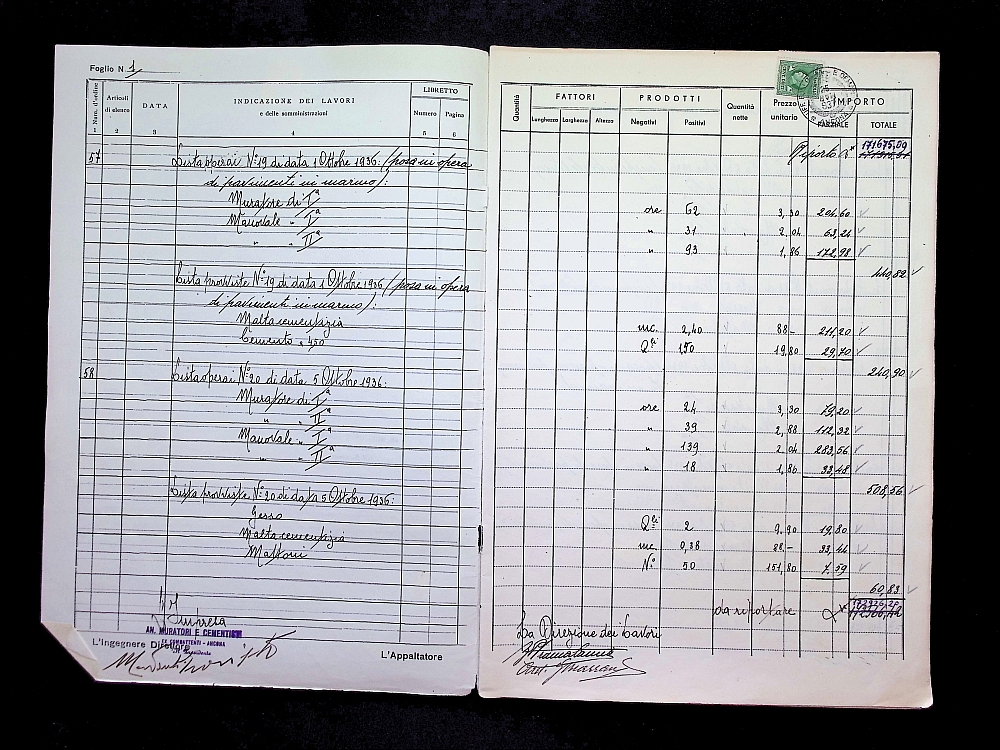 Foglio N. 1
Num. d'ordine
Articoli di elenco
DATA
INDICAZIONE DEI LAVORI
e delle somministrazioni
LIBRETTO
Numero Pagina
1 2 3 4 5 6
57 Lista operai N° 19 di data 1 Ottobre 1936 (posa in opera
di pavimenti in marmo):
Muratore di Iª
Manovale " Iª
" " IIª
Lista provviste N° 19 di data 1 Ottobre 1936 (posa in opera
di pavimenti in marmo):
Malta cementizia
Cemento " 450
58 Lista operai N° 20 di data 5 Ottobre 1936:
Muratore di Iª
" " IIª
Manovale " Iª
" " IIª
Lista provviste N° 20 di data 5 Ottobre 1936:
Gesso
Malta cementizia
Mattoni
L'Impresa
AN. MURATORI E CEMENTISTI
EX COMBATTENTI - ANCONA
Il Presidente
L'Ingegnere Direttore
L'Appaltatore
Quantità
FATTORI
Lunghezza Larghezza Altezza
PRODOTTI
Negativi Positivi
Quantità nette
Prezzo unitario
IMPORTO
PARZIALE TOTALE
Riporto 171675,09
ore 62 3,30 204,60
" 31 2,04 63,24
" 93 1,86 172,98
440,82
mc. 2,40 88- 211,20
Q.li 1,50 19,80 29,70
240,90
ore 24 3,30 79,20
" 39 2,88 112,32
" 139 2,04 283,56
" 18 1,86 33,48
508,56
Q.li 2 9,90 19,80
mc. 0,38 88,- 33,44
N° 50 151,80 7,59
60,83
da riportare
La Direzione dei Lavori